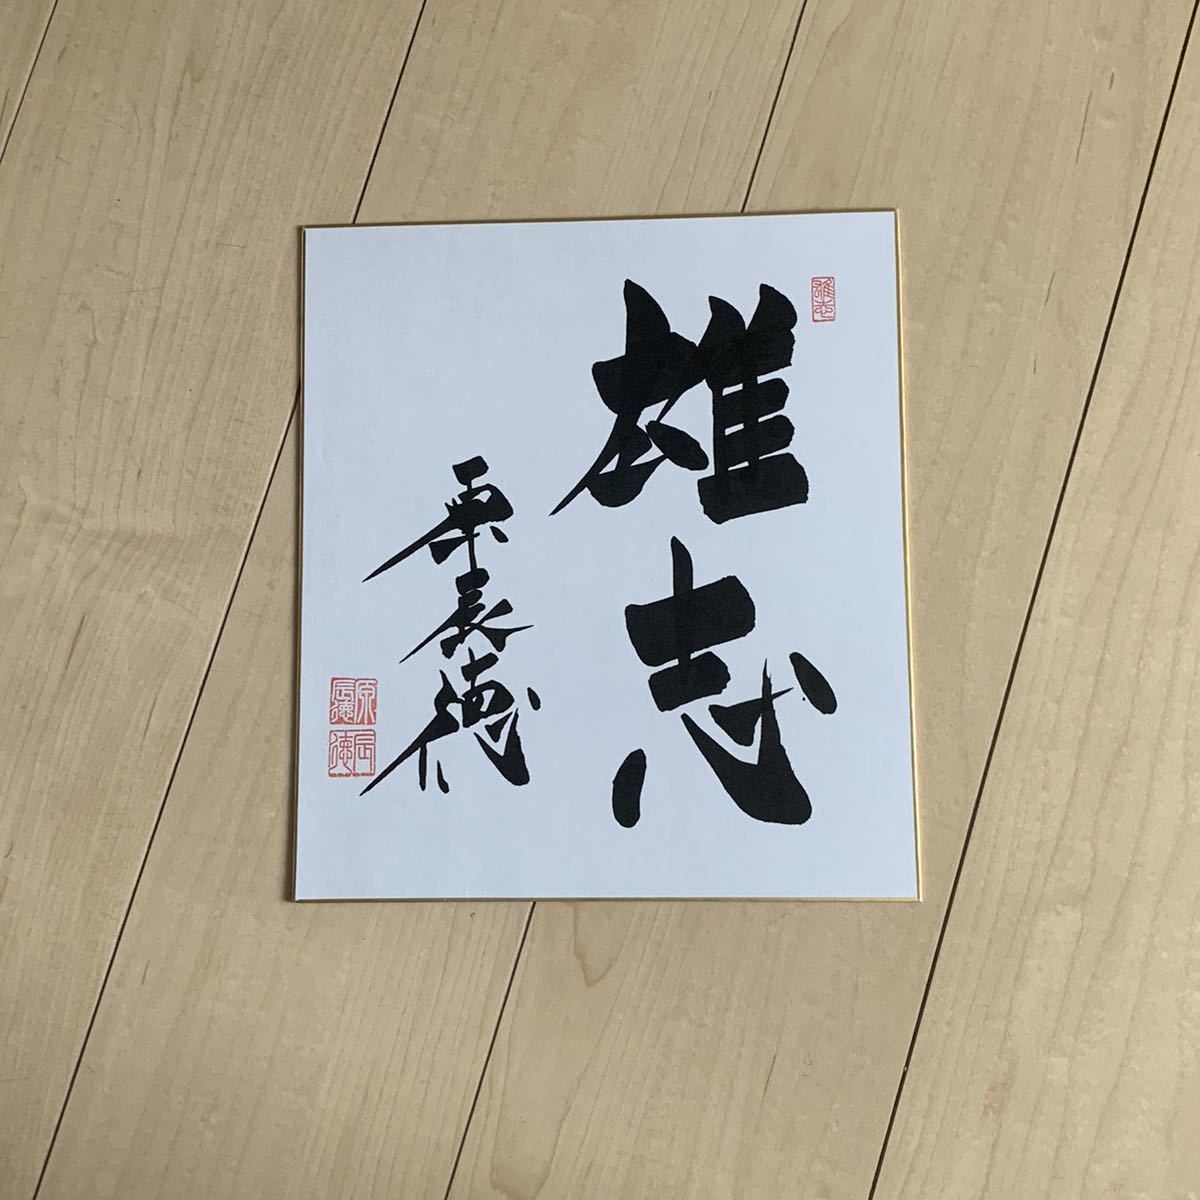 雄志
雄志
原辰徳
原辰徳
辰徳